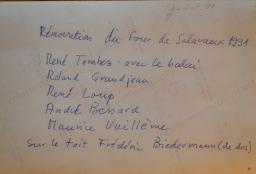 Juillet 91
Rénovation du Four de Salavaux 1991
René Tombez - avec le balai
Roland Grandjean
René Loup
André Bessard
Maurice Vuillème
Sur le toit Frédéric Biedermann (de dos)